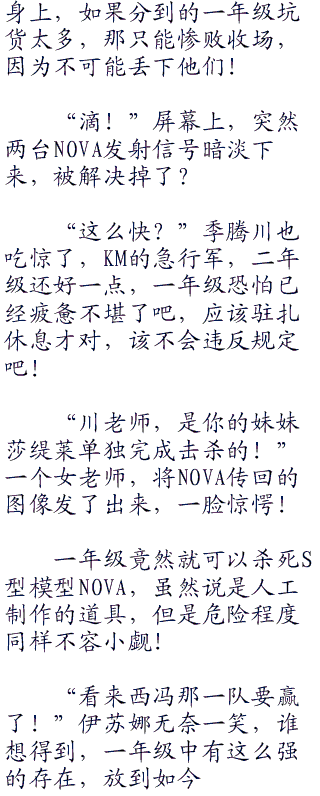 身上，如果分到的一年级坑
货太多，那只能惨败收场，
因为不可能丢下他们！
“滴！”屏幕上，突然
两台NOVA发射信号暗淡下
来，被解决掉了？
“这么快？”季腾川也
吃惊了，KM的急行军，二年
级还好一点，一年级恐怕已
经疲惫不堪了吧，应该驻扎
休息才对，该不会违反规定
吧！
“川老师，是你的妹妹
莎缇莱单独完成击杀的！”
一个女老师，将NOVA传回的
图像发了出来，一脸惊愕！
一年级竟然就可以杀死S
型模型NOVA，虽然说是人工
制作的道具，但是危险程度
同样不容小觑！
“看来西冯那一队要赢
了！”伊苏娜无奈一笑，谁
想得到，一年级中有这么强
的存在，放到如今